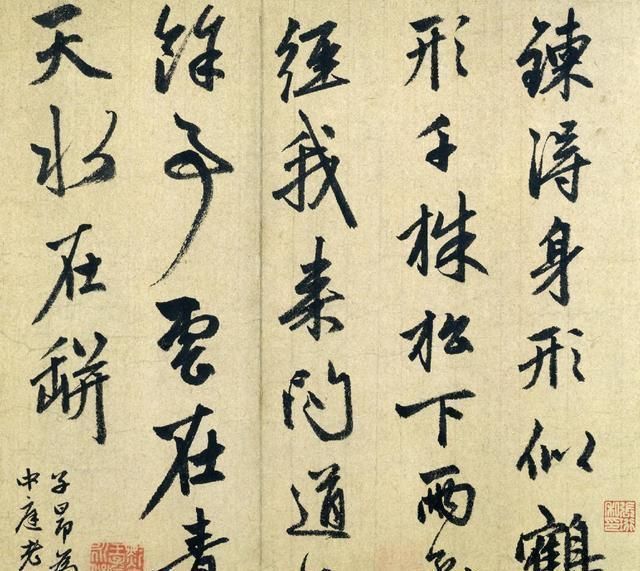 鍊得身形似鶴
形千株松下兩
經我來問道
餘事雲在青
天水在缾
子昂為
中庭老